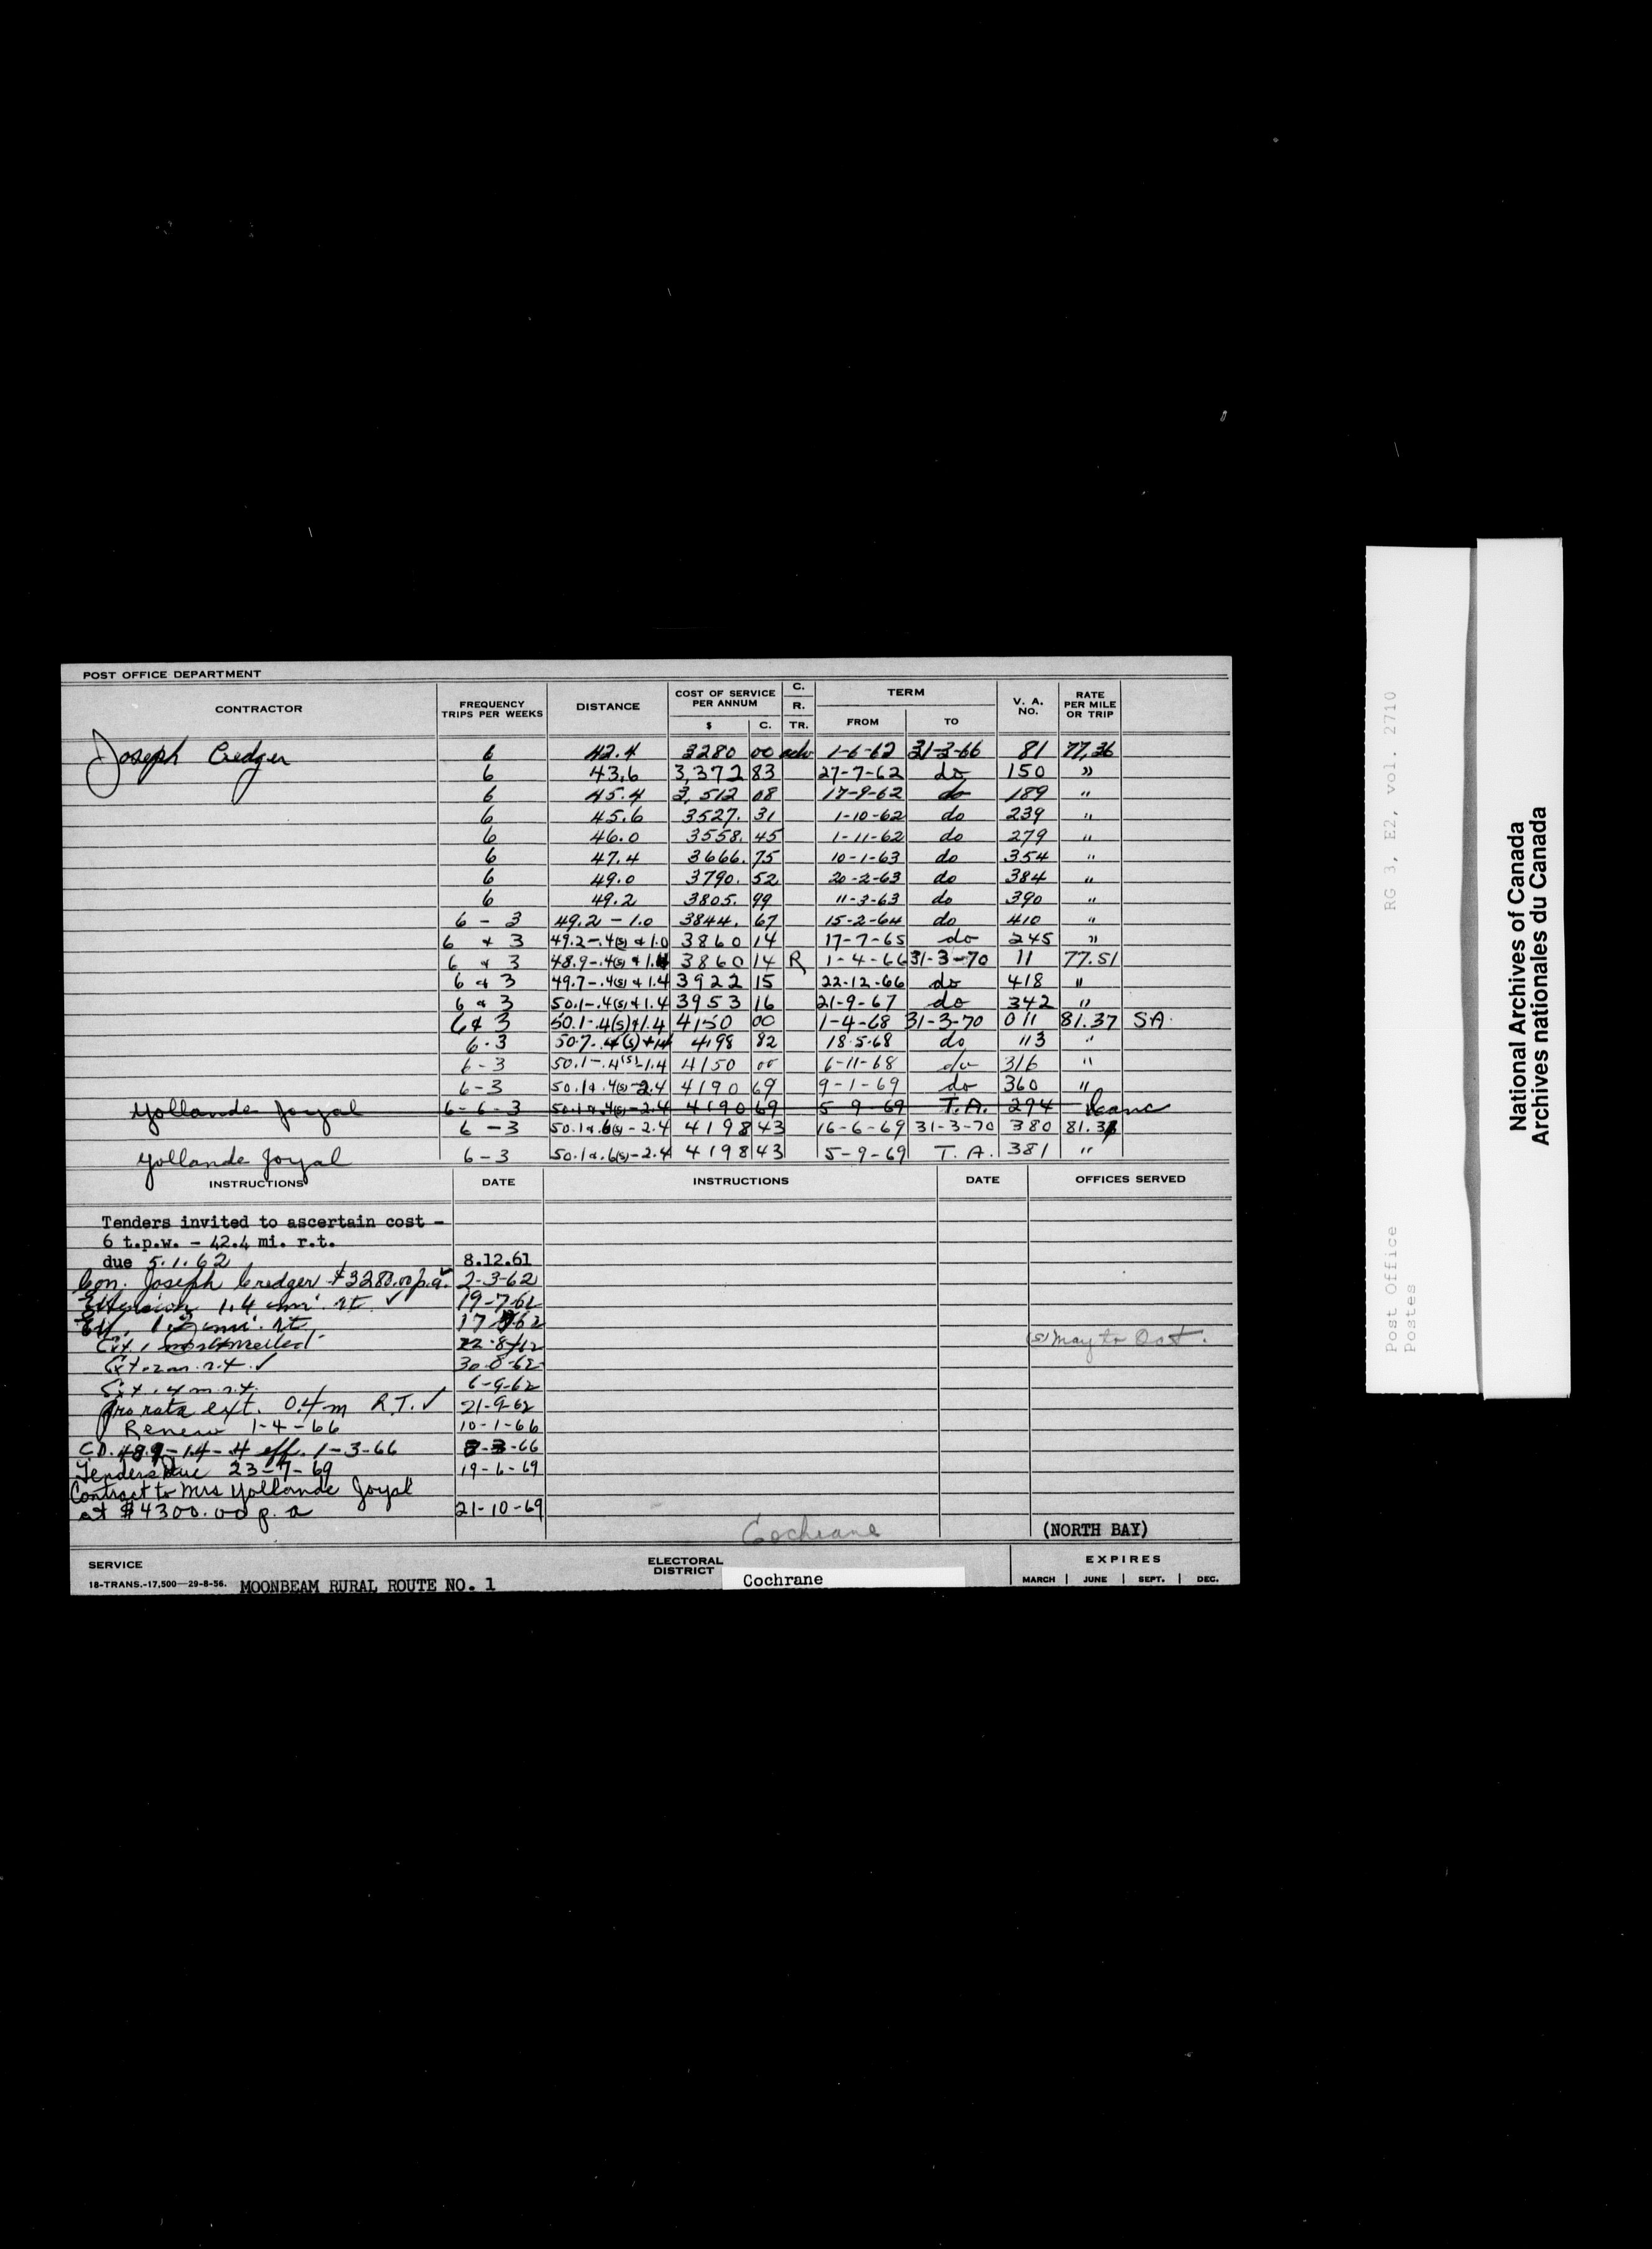 POST OFFICE DEPARTMENT
CONTRACTOR FREQUENCY TRIPS PER WEEKS DISTANCE COST OF SERVICE PER ANNUM $ C. C. R. TR. TERM FROM TO V. A. NO. RATE PER MILE OR TRIP
Joseph Credger 6 42.4 3280 00 adv 1-6-62 31-3-66 81 77.36
6 43.6 3,372 83 27-7-62 do 150 "
6 45.4 3,512 08 17-9-62 do 189 "
6 45.6 3527. 31 1-10-62 do 239 "
6 46.0 3558. 45 1-11-62 do 279 "
6 47.4 3666. 75 10-1-63 do 354 "
6 49.0 3790. 52 20-2-63 do 384 "
6 49.2 3805. 99 11-3-63 do 390 "
6 - 3 49.2 - 1.0 3844. 67 15-2-64 do 410 "
6 & 3 49.2-.4(s) & 1.0 3860 14 17-7-65 do 245 "
6 & 3 48.9-.4(s) & 1.4 3860 14 R 1-4-66 31-3-70 11 77.51
6 & 3 49.7-.4(s) & 1.4 3922 15 22-12-66 do 418 "
6 & 3 50.1-.4(s) & 1.4 3953 16 21-9-67 do 342 "
6 & 3 50.1-.4(s)+1.4 4150 00 1-4-68 31-3-70 011 81.37 SA.
6-3 50.7-.4(s)+1.4 4198 82 18-5-68 do 113 "
6-3 50.1-.4(s)-1.4 4150 00 6-11-68 do 316 "
6-3 50.1&.4(s)-2.4 4190 69 9-1-69 do 360 "
Yollande Joyal 6-6-3 50.1&.4(s)-2.4 4190 69 5-9-69 T.A. 294 Canc
6-3 50.1&.6(s)-2.4 4198 43 16-6-69 31-3-70 380 81.3
Yollande Joyal 6-3 50.1&.6(s)-2.4 4198 43 5-9-69 T.A. 381 "
INSTRUCTIONS DATE INSTRUCTIONS DATE OFFICES SERVED
Tenders invited to ascertain cost -
6 t.p.w. - 42.4 mi. r.t.
due 5.1.62 8.12.61
Con. Joseph Credger $3280.00 p.a. 2-3-62
Extension 1.4 mi. rt ✓ 19-7-62
Ext. 1.2 mi. rt 17 62
Ext. 22-8-62 (s) May to Oct.
Ext .2 m. r.t. ✓ 30-8-62
Ext .4 m r.t. 6-9-62
pro rata ext. 0.4 m R.T. ✓ 21-9-62
Renew 1-4-66 10-1-66
C.D. 48.9-1.4-.4 eff. 1-3-66 8-3-66
Tenders due 23-7-69 19-6-69
Contract to Mrs Yollande Joyal
at $4300.00 p.a 21-10-69
Cochrane (NORTH BAY)
SERVICE ELECTORAL DISTRICT Cochrane EXPIRES
18-TRANS.-17,500—29-8-56. MOONBEAM RURAL ROUTE NO. 1 MARCH | JUNE | SEPT. | DEC.
RG 3, E2, vol. 2710
Post Office
Postes
National Archives of Canada
Archives nationales du Canada